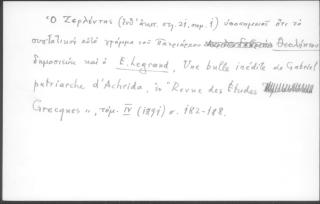 Ὁ Ζερλέντης (ἔνθ' ἀνωτ. σελ. 21, σημ. 1) ὑποσημειοῖ ὅτι τὸ
συστατικὸν αὐτὸ γράμμα τοῦ πατριάρχου Θεολήπτου
δημοσιεύει καὶ ὁ E. Legrand, Une bulle inédite de Gabriel
patriarche d'Achrida, ἐν "Revue des Études
Grecques", τόμ. IV (1891) σ. 182-188.